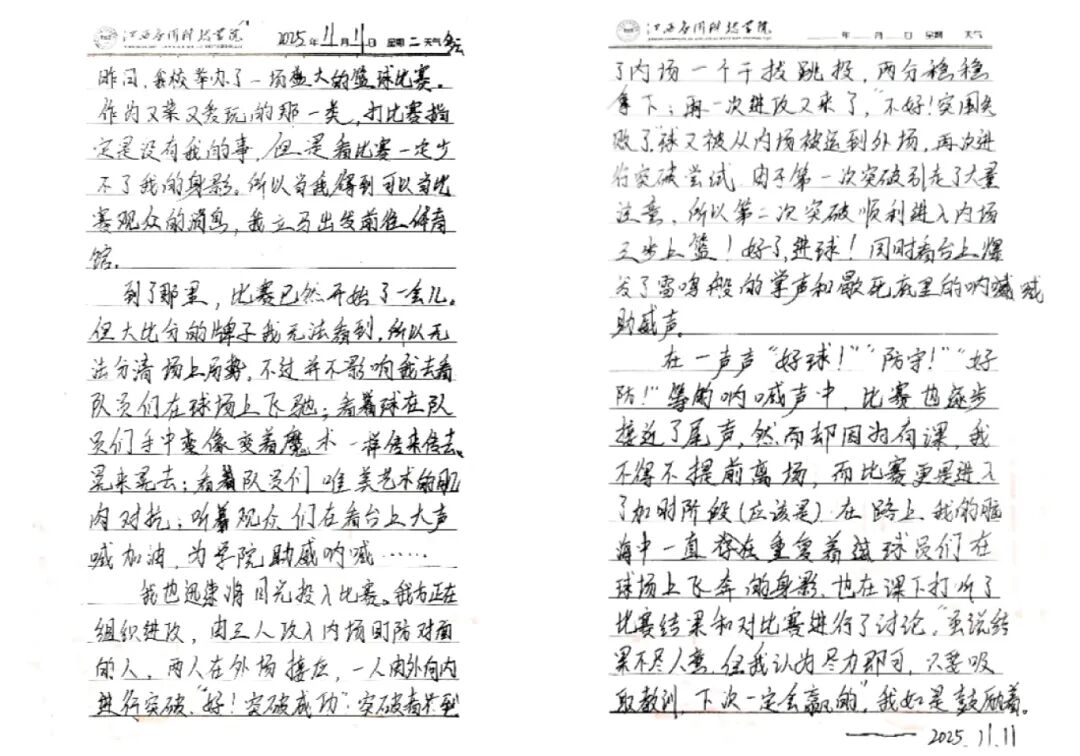 江西应用科技学院
2025年11月11日 星期二 天气多云
昨日，我校举办了一场盛大的篮球比赛。
作为又菜又爱玩的那一类，打比赛指
定是没有我的事，但是看比赛一定少
不了我的身影。所以当我得到可以当比
赛观众的消息，我立马出发前往体育
馆。
到了那里，比赛已然开始了一会儿。
但大比分的牌子我无法看到，所以无
法分清场上局势，不过并不影响我去看
队员们在球场上飞驰；看着球在队
员们手中变像变着魔术一样传来传去、
晃来晃去；看着队员们唯美艺术的肌
肉对抗；听着观众们在看台上大声
喊加油，为学院助威呐喊……
我也迅速将目光投入比赛。我方正在
组织进攻，由三人攻入内场盯防对面
的人，两人在外场接应，一人由外向内
进行突破，“好！突破成功”突破者来到
江西应用科技学院
年 月 日 星期 天气
了内场一个干拔跳投，两分稳稳
拿下；再一次进攻又来了，“不好！突围失
败了”球又被从内场被运到外场，再次进
行突破尝试，由于第一次突破引走了大量
注意，所以第二次突破顺利进入内场
三步上篮！好了，进球！同时看台上爆
发了雷鸣般的掌声和歇死底里的呐喊
助威声。
在一声声“好球！”“防守！”“好
防！”等的呐喊声中，比赛也逐步
接近了尾声，然而却因为有课，我
不得不提前离场，而比赛更是进入
了加时阶段（应该是）在路上，我的脑
海中一直存在重复着球员们在
球场上飞奔的身影，也在课下打听了
比赛结果和对比赛进行了讨论，“虽说结
果不尽人意，但我认为尽力即可，只要吸
取教训，下次一定会赢的”我如是鼓励着。
——2025.11.11